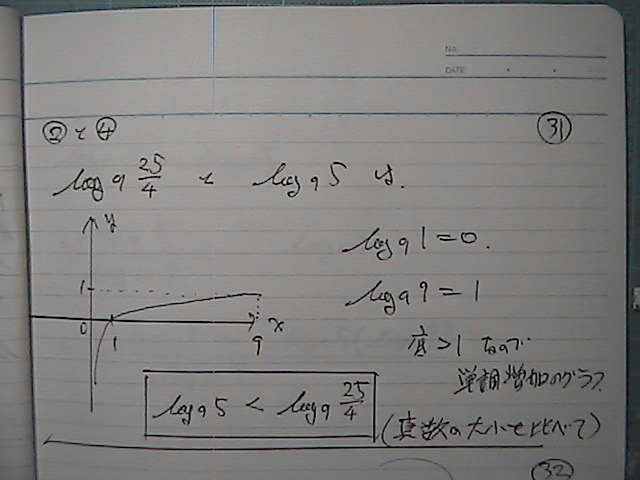 No.
DATE
②と④
㉛
log₉ 25/4 と log₉ 5 は.
log₉ 1 = 0.
log₉ 9 = 1
底 > 1 なので
単調増加のグラフ
y
1
0 1 9 x
log₉ 5 < log₉ 25/4
(真数の大小を比べて)
㉜